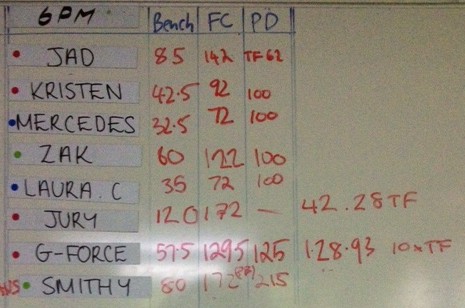 6PM Bench FC PD
JAD 85 142 TF62
KRISTEN 42.5 92 100
MERCEDES 32.5 72 100
ZAK 60 122 100
LAURA.C 35 72 100
JURY 120 172 — 42.28TF
G-FORCE 57.5 129.5 125 1.28.93 10xTF
SMITHY 80 172 215